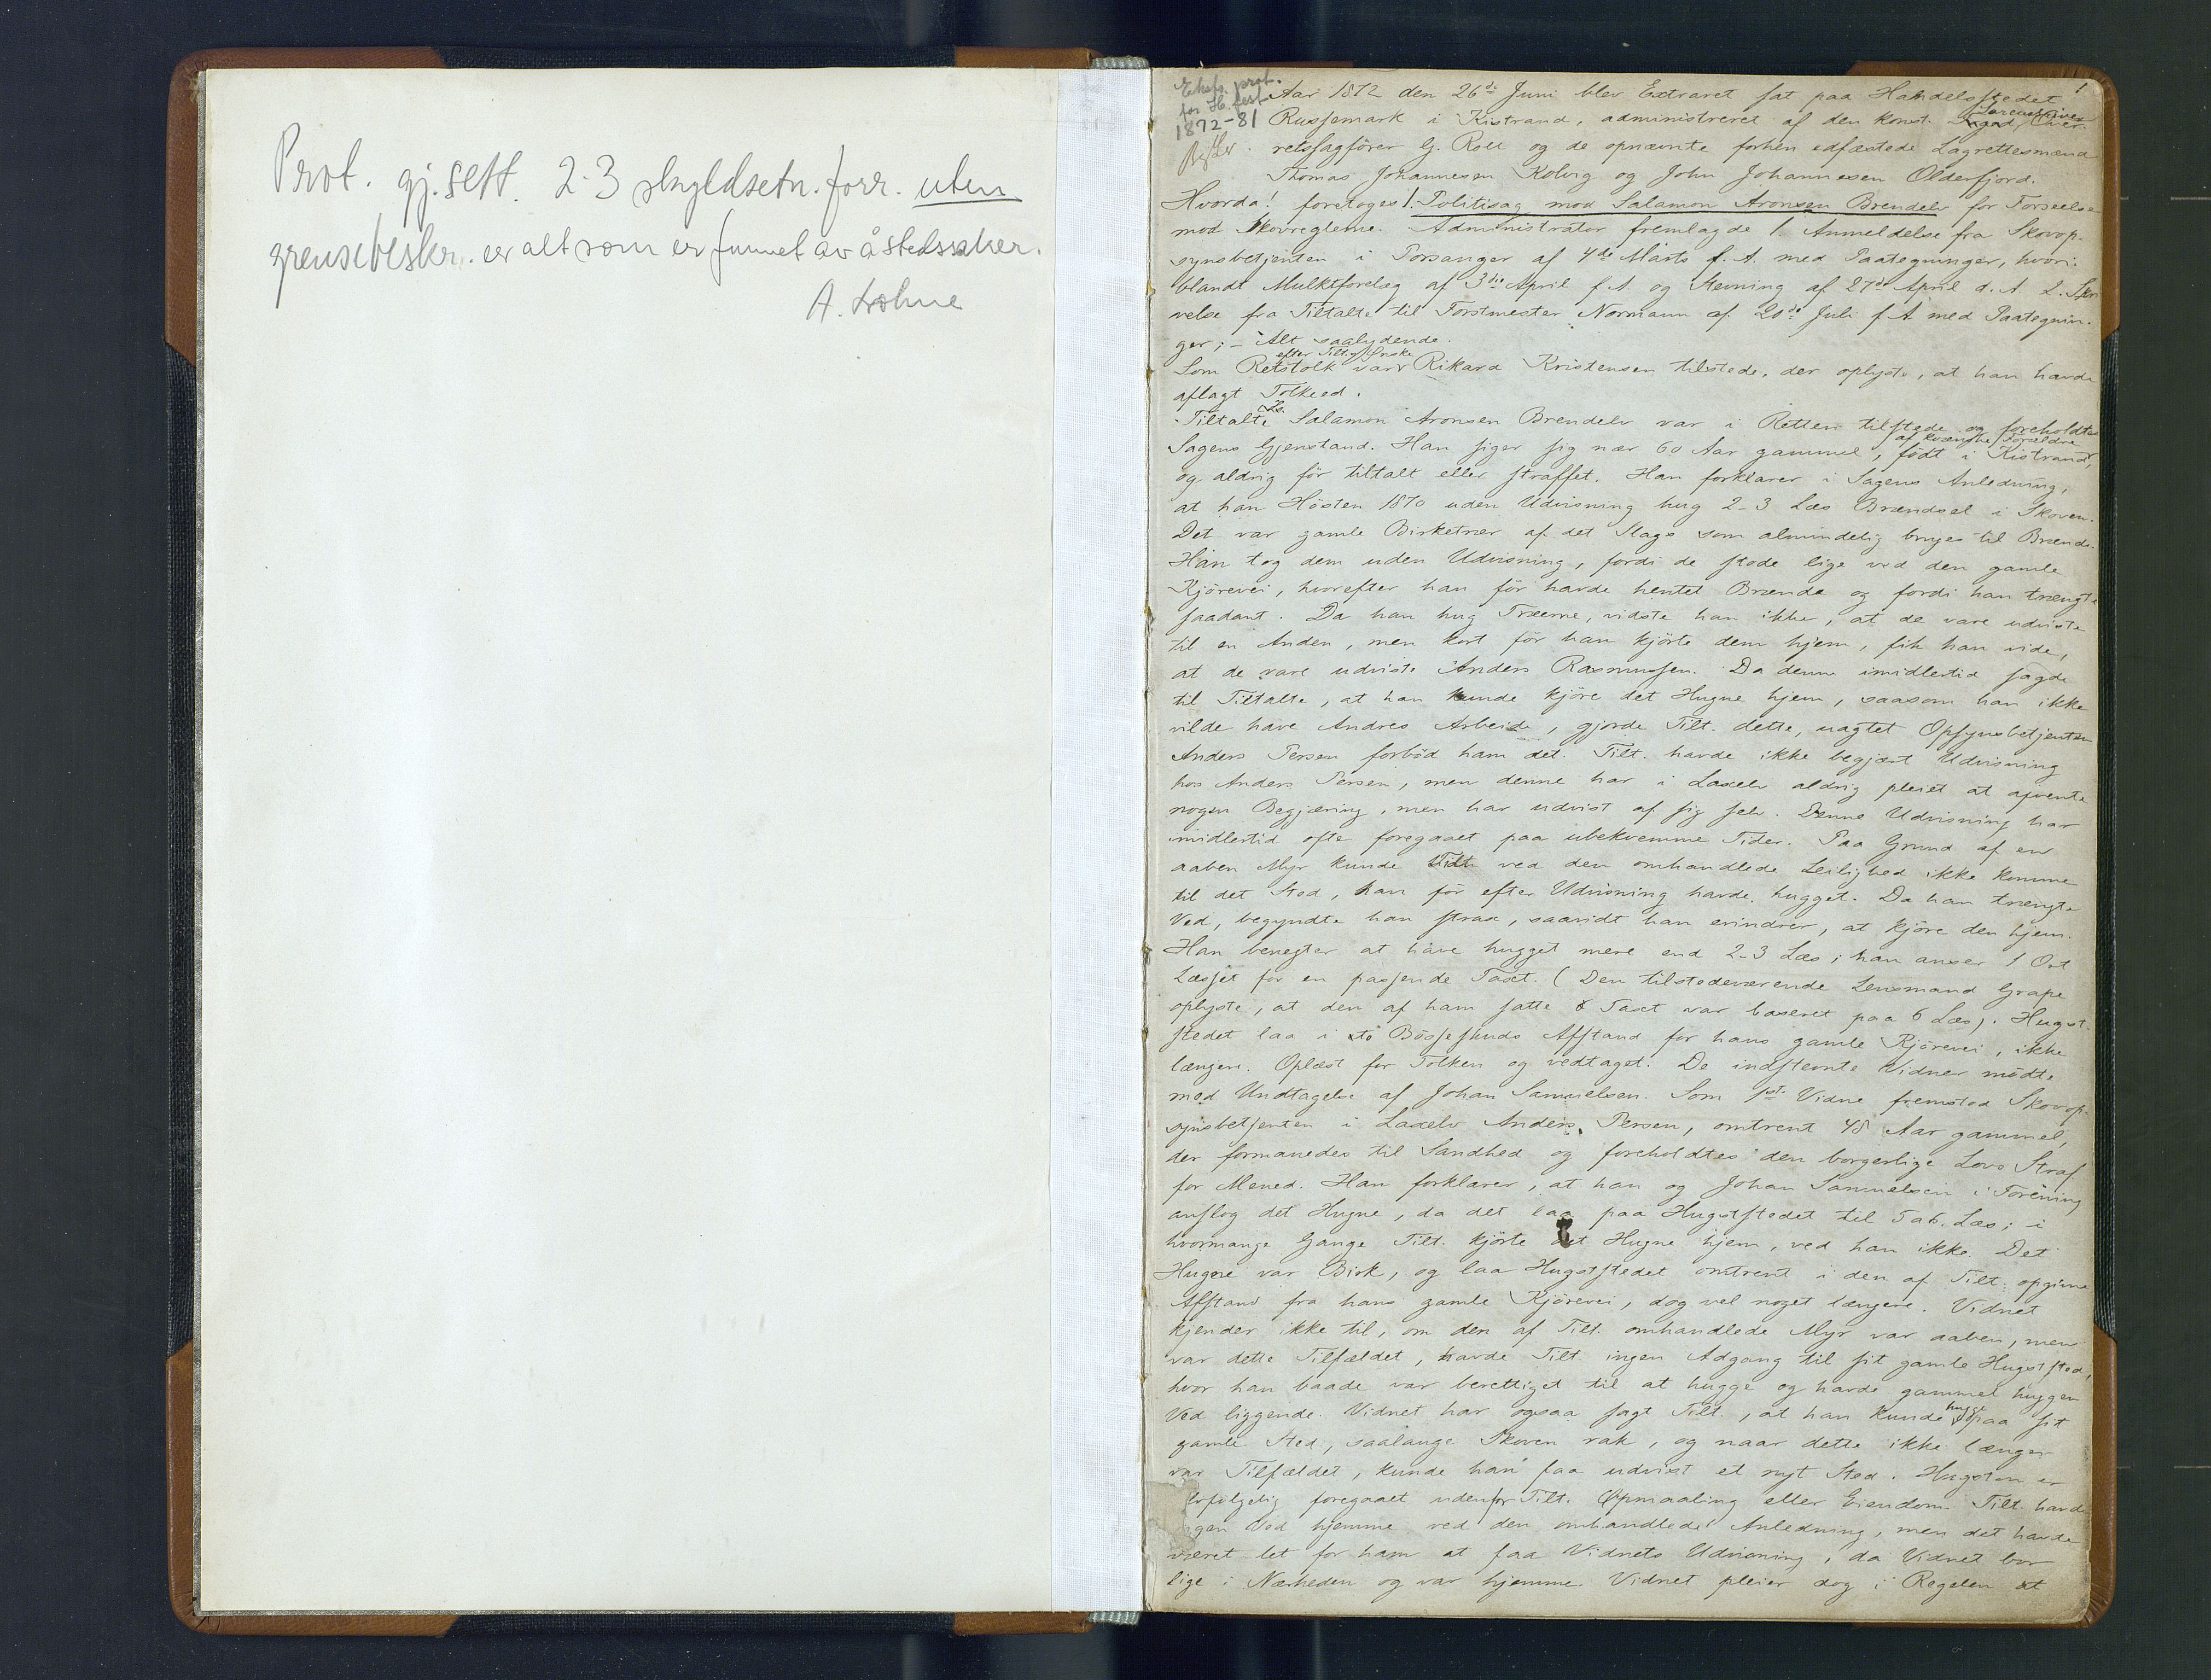 Prot. gj. sett. 2-3 skyldsetn. forr. uten
grensebeskr. er alt som er funnet av åstedssaker.
A. Løhne
Ekstr. prot.
for
1872-81
1
Aar 1872 den 26de Juni blev Extraret sat paa Handelsstedet
Sorenskriver
Russemark i Kistrand, administreret af den konst. Over
retssagfører G. Roll og de opnævnte forhen edfæstede Lagrettesmænd
Thomas Johannesen Kolvig og John Johannesen Olderfjord.
Hvorda! foretoges 1. Politisag mod Salamon Aronsen Brendelv for Forseelse
mod Skovreglerne. Administrator fremlagde 1. Anmeldelse fra Skovop-
synsbetjenten i Porsanger af 4de Marts f. A. med Paategninger, hvori-
blandt Mulktforelæg af 3die April f. A. og Stevning af 27de April d. A. 2. Skri
velse fra Tiltalte til Forstmester Normann af 20de Juli f. A. med Paategnin-
ger; - Alt saalydende.
efter Tilt. Ønske
Som Retstolk var Rikard Kristensen tilstede, der oplyste, at han havde
aflagt Tolkeed.
Tiltalte Salamon Aronsen Brendelv var i Retten tilstede og foreholdtes
af kvænske Forældre
Sagens Gjenstand. Han siger sig nær 60 Aar gammel, født i Kistrand,
og aldrig før tiltalt eller straffet. Han forklarer i Sagens Anledning,
at han Høsten 1870 uden Udvisning hug 2-3 Læs Brændsel i Skoven.
Det var gamle Birketrær af det Slags som almindelig bruges til Brænde.
Han tog dem uden Udvisning, fordi de stode lige ved den gamle
Kjørevei, hvorefter han før havde hentet Brænde og fordi han trængte
saadant. Da han hug Træerne, vidste han ikke, at de vare udviste
til en Anden, men kort før han kjørte dem hjem, fik han vide,
at de vare udviste Anders Rasmussen. Da denne imidlertid sagde
til Tiltalte, at han kunde kjøre det Hugne hjem, saasom han ikke
vilde have Andres Arbeide, gjorde Tilt. dette, uagtet Opsynsbetjenten
Anders Persen forbød ham det. Tilt. havde ikke begjært Udvisning
hos Anders Persen, men denne har i Laxelv aldrig pleiet at afvente
nogen Begjæring, men har udvist af sig selv. Denne Udvisning har
imidlertid ofte foregaaet paa ubekvemme Tider. Paa Grund af en
aaben Myr kunde Tilt. ved den omhandlede Leilighed ikke komme
til det Sted, han før efter Udvisning havde hugget. Da han trængte
Ved, begyndte han strax, saavidt han erindrer, at kjøre den hjem.
Han benegter at have hugget mere end 2-3 Læs; han anser 1 Ort
Læsset for en passende Taxt. (Den tilstedeværende Lensmand Grape
oplyste, at den af ham satte Taxt var baseret paa 6 Læs). Hugst-
stedet laa i to Bøsseskuds Afstand for hans gamle Kjørevei, ikke
længere. Oplæst for Tolken og vedtaget. De indstevnte Vidner mødte
med Undtagelse af Johan Samuelsen. Som 1ste Vidne fremstod Skovop-
synsbetjenten i Laxelv Anders Persen, omtrent 48 Aar gammel,
der formanedes til Sandhed og foreholdtes den borgerlige Lovs Straf
for Mened. Han forklarer, at han og Johan Samuelsen i Forening
anslog det Hugne, da det laa paa Hugststedet til 5 a 6 Læs; i
hvormange Gange Tilt. kjørte det Hugne hjem, ved han ikke. Det
Hugne var Birk, og laa Hugststedet omtrent i den af Tilt. opgivne
Afstand fra hans gamle Kjørevei, dog vel noget længere. Vidnet
kjender ikke til, om den af Tilt. omhandlede Myr var aaben, men
var dette Tilfældet, havde Tilt. ingen Adgang til sit gamle Hugststed,
hvor han baade var berettiget til at hugge og havde gammel huggen
Ved liggende. Vidnet har ogsaa sagt Tilt., at han kunde hugge paa sit
gamle Sted, saalænge Skoven rak, og naar dette ikke længer
var Tilfældet, kunde han faa udvist et nyt Sted. Hugsten er
foregaaet udenfor Tilt. Opmaaling eller Eiendom. Tilt. havde
ingen Ved hjemme ved den omhandlede Anledning, men det havde
været let for ham at faa Vidnets Udvisning, da Vidnet bor
lige i Nærheden og var hjemme. Vidnet pleier dog i Regelen at